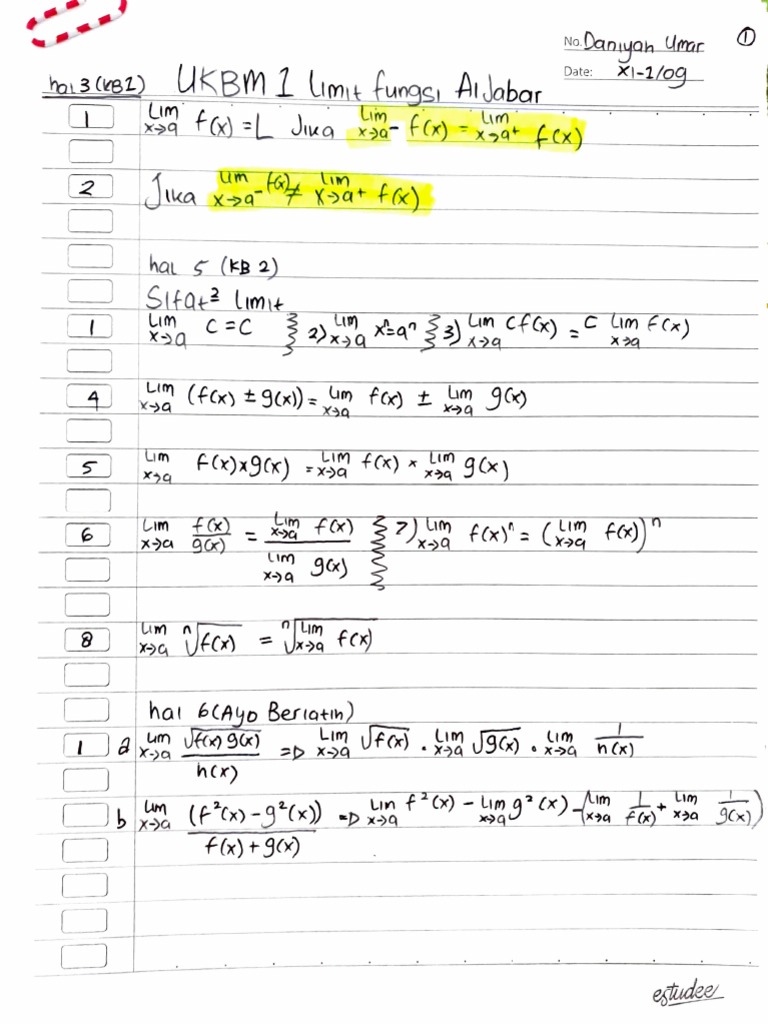 No. Daniyah Umar ①
Date: XI-2/09
hal 3 (KB1) UKBM 1 Limit fungsi Aljabar
1 Lim x→a f(x) = L Jika Lim x→a⁻ f(x) = Lim x→a⁺ f(x)
2 Jika Lim x→a⁻ f(x) ≠ Lim x→a⁺ f(x)
hal 5 (KB 2)
Sifat² limit
1 Lim x→a C = C 2) Lim x→a xⁿ = aⁿ 3) Lim x→a Cf(x) = C Lim x→a f(x)
4 Lim x→a (f(x) ± g(x)) = Lim x→a f(x) ± Lim x→a g(x)
5 Lim x→a f(x) × g(x) = Lim x→a f(x) × Lim x→a g(x)
6 Lim x→a f(x)/g(x) = Lim x→a f(x) / Lim x→a g(x) 7) Lim x→a f(x)ⁿ = (Lim x→a f(x))ⁿ
8 Lim x→a ⁿ√f(x) = ⁿ√Lim x→a f(x)
hal 6 (Ayo Berlatih)
1 a Lim x→a √f(x) g(x) / h(x) => Lim x→a √f(x) . Lim x→a √g(x) . Lim x→a 1/h(x)
b Lim x→a (f²(x) - g²(x)) / f(x) + g(x) => Lim x→a f²(x) - Lim x→a g²(x) - (Lim x→a 1/f(x) + Lim x→a 1/g(x))
estudee